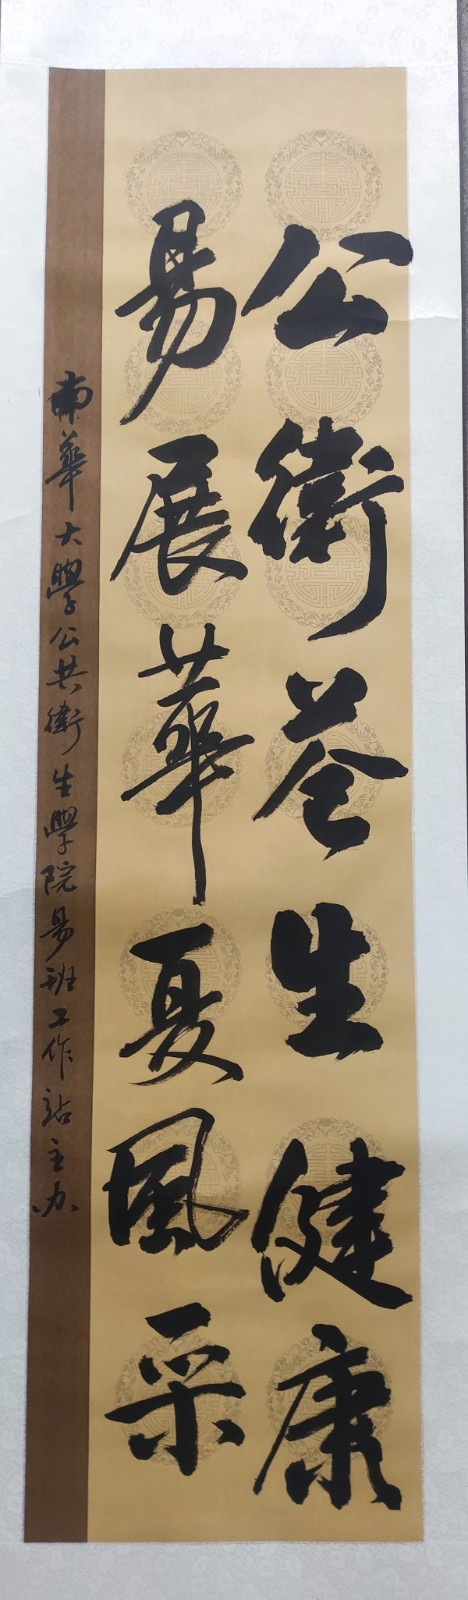 公衛蒼生健康
易展華夏風采
南華大學公共衛生學院易班工作站主办